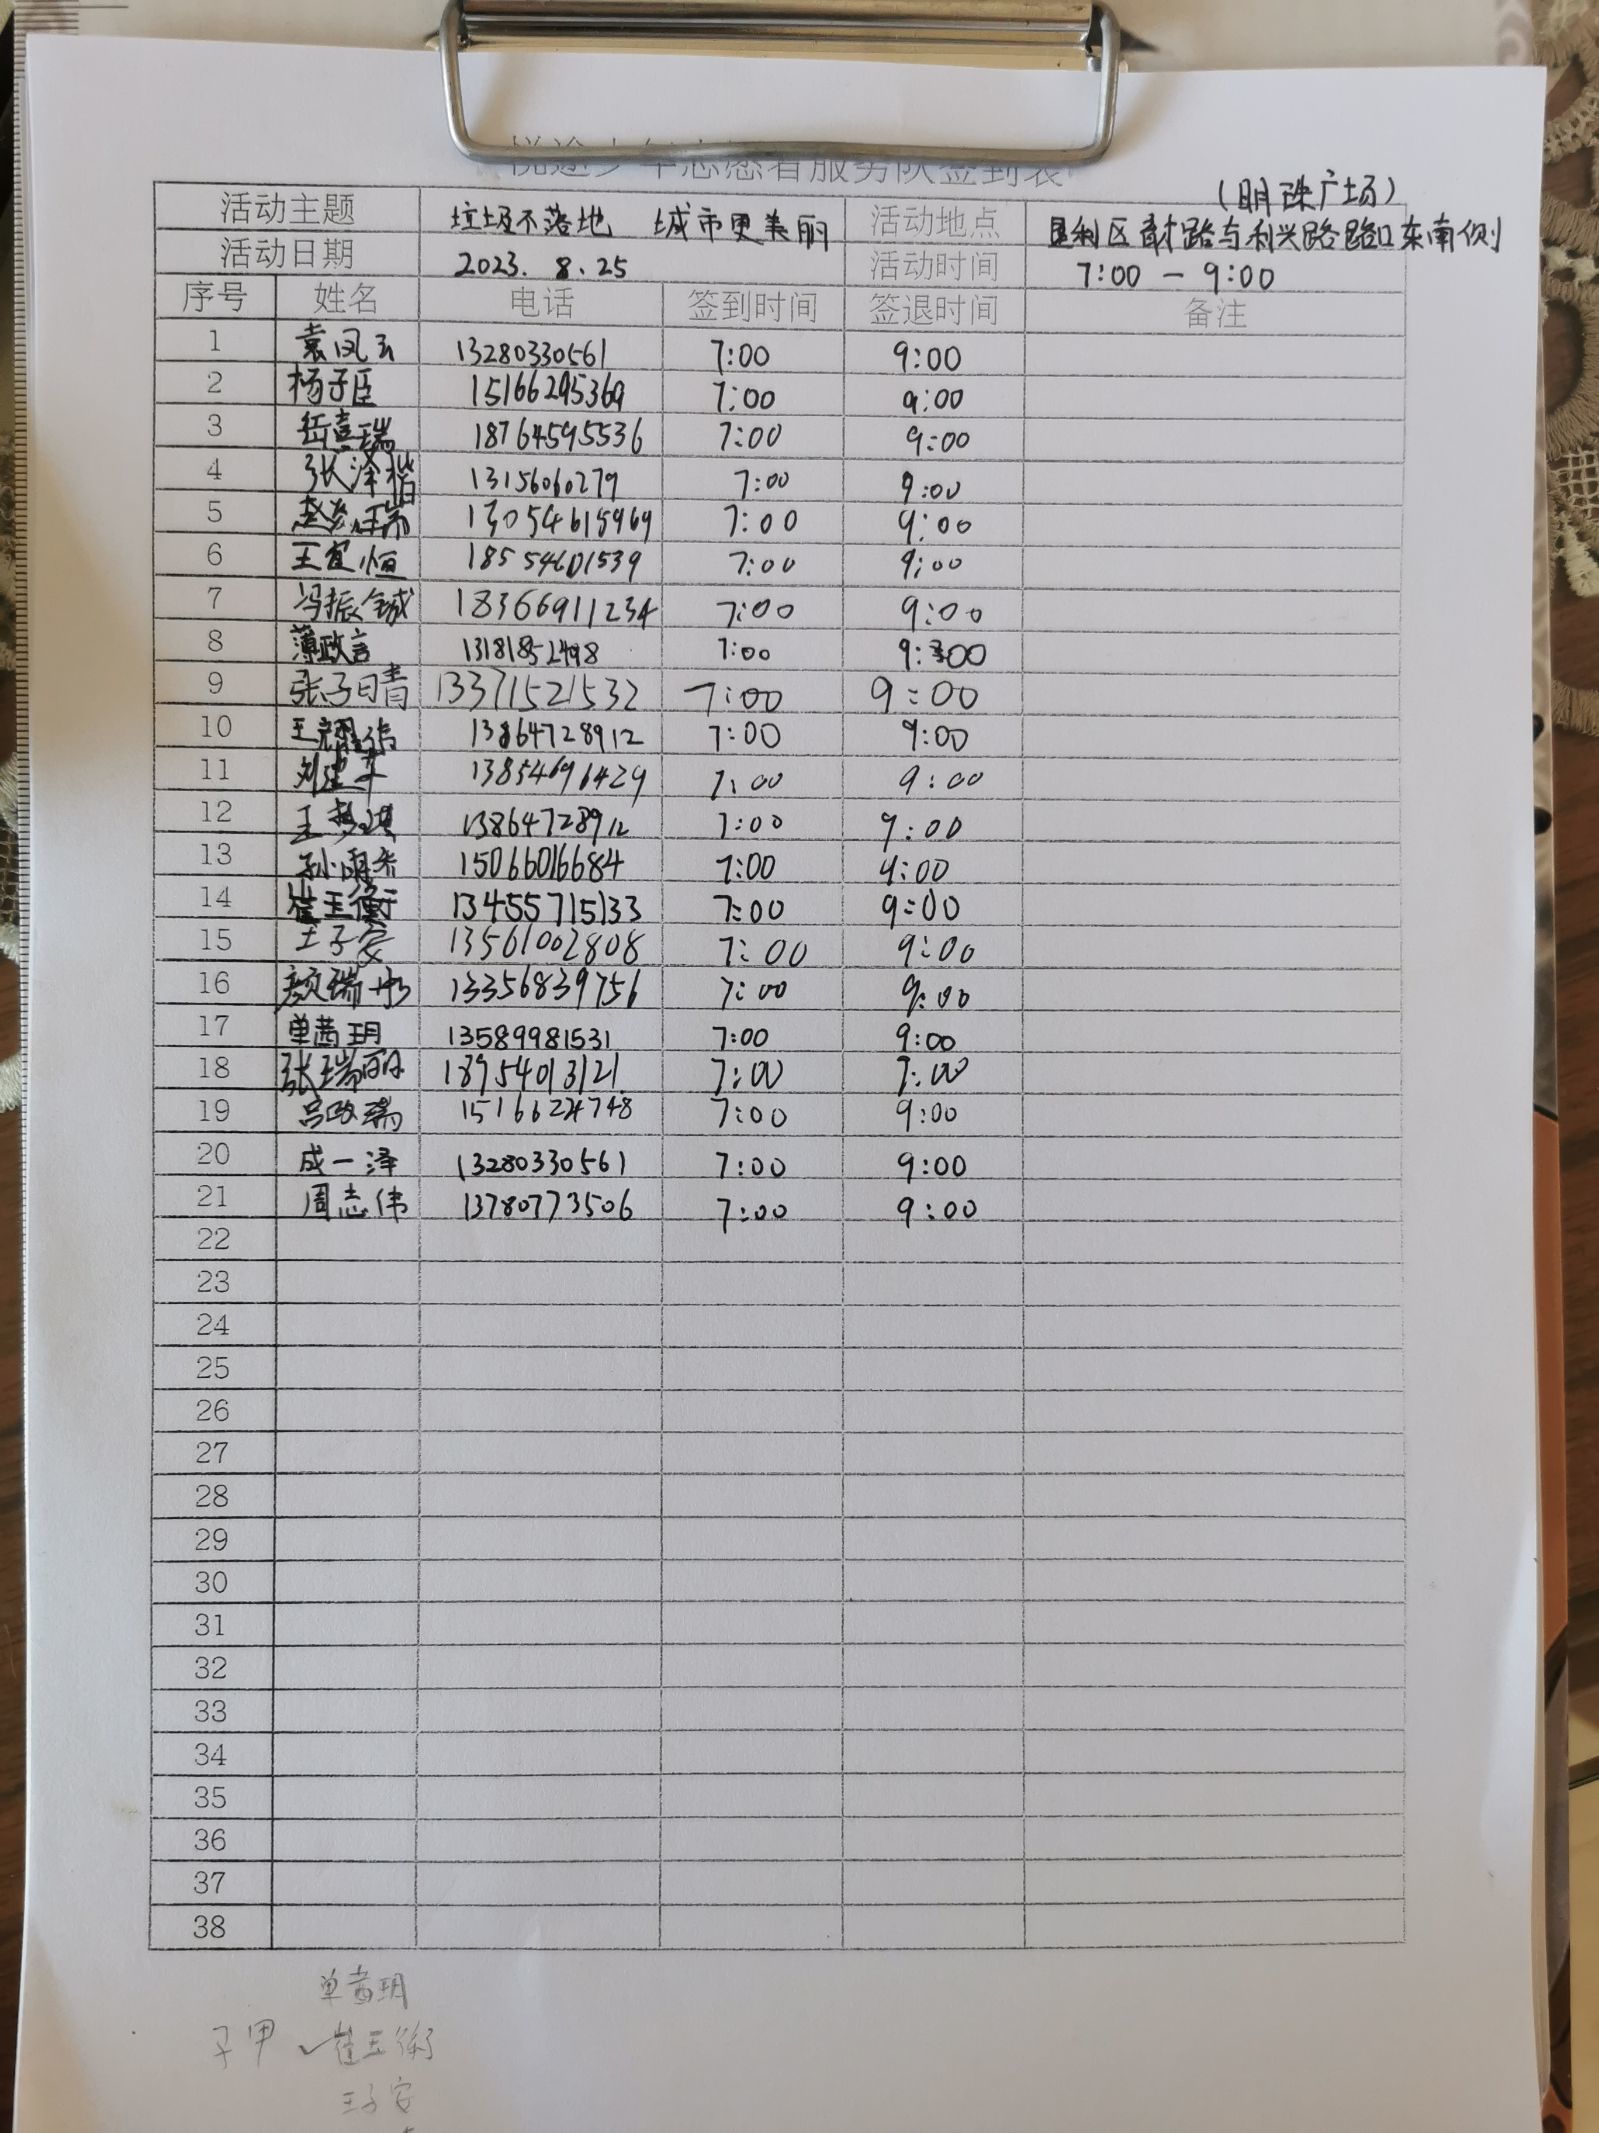 悦途少年志愿者服务队签到表
(明珠广场)
活动主题 垃圾不落地 城市更美丽 活动地点 垦利区育才路与利兴路路口东南侧
活动日期 2023. 8. 25 活动时间 7:00 - 9:00
序号 姓名 电话 签到时间 签退时间 备注
1 袁凤云 13280330561 7:00 9:00
2 杨子臣 15166295369 7:00 9:00
3 岳熹瑞 18764595536 7:00 9:00
4 张泽楷 13156060279 7:00 9:00
5 13054615969 7:00 9:00
6 王宜恒 18554601539 7:00 9:00
7 冯振铖 18366911234 7:00 9:00
8 薄政言 13181852498 7:00 9:00
9 张子晴 13371521532 7:00 9:00
10 13864728912 7:00 9:00
11 13854696429 7:00 9:00
12 王梦琪 13864728912 7:00 9:00
13 孙雨希 15066016684 7:00 9:00
14 崔玉衡 13455715133 7:00 9:00
15 王子安 13561002808 7:00 9:00
16 颜瑞彤 13356839756 7:00 9:00
17 单茜玥 13589981531 7:00 9:00
18 张瑞丽 18954013121 7:00 9:00
19 吕政瑞 15166224748 7:00 9:00
20 成一泽 13280330561 7:00 9:00
21 周志伟 13780773506 7:00 9:00
22
23
24
25
26
27
28
29
30
31
32
33
34
35
36
37
38
单茜玥
子甲 ✓崔玉衡
王子安